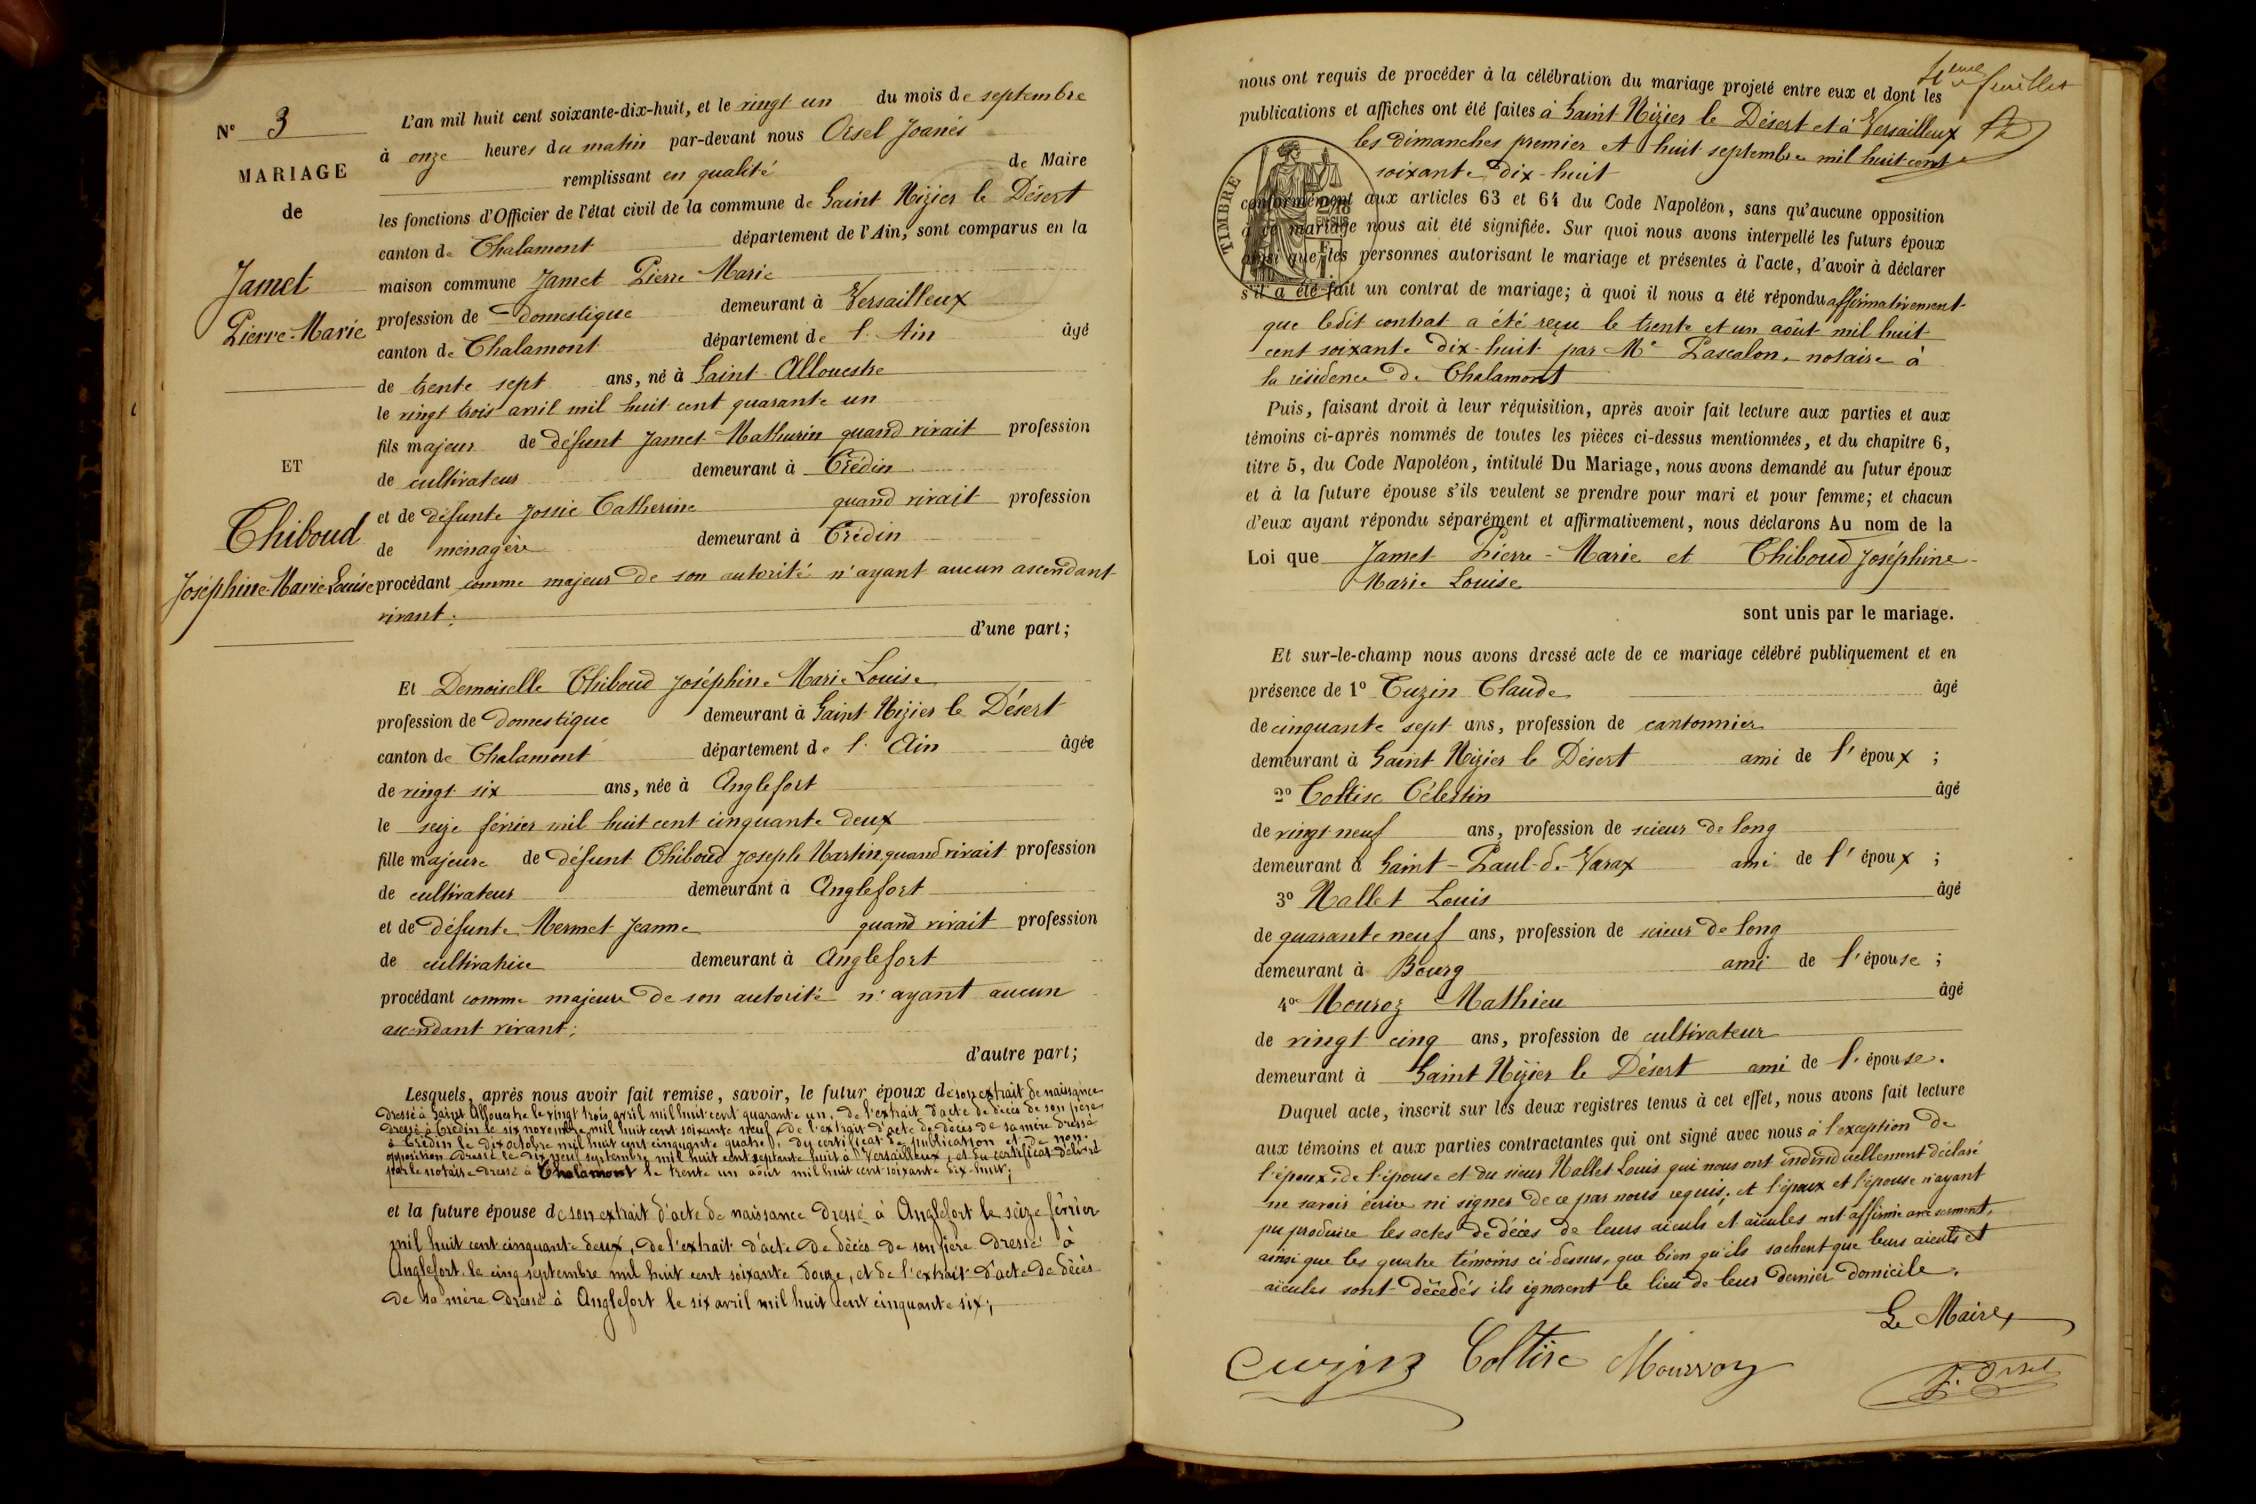 N° 3
MARIAGE
de
Jamet
Pierre-Marie
ET
Thiboud
Joséphine-Marie-Louise
L'an mil huit cent soixante-dix-huit, et le vingt un du mois de septembre
à onze heures du matin par-devant nous Orsel Joanès
remplissant en qualité de Maire
les fonctions d'Officier de l'état civil de la commune de Saint Nizier le Désert
canton de Chalamont département de l'Ain, sont comparus en la
maison commune Jamet Pierre-Marie
profession de domestique demeurant à Versailleux
canton de Chalamont département de l'Ain âgé
de trente sept ans, né à Saint-Allouestre
le vingt trois avril mil huit cent quarante un
fils majeur de défunt Jamet Mathurin quand vivait profession
de cultivateur demeurant à Crédin
et de défunte Jossic Catherine quand vivait profession
de ménagère demeurant à Crédin
procédant comme majeur de son autorité n'ayant aucun ascendant
vivant;
d'une part;
Et Demoiselle Thiboud Joséphine Marie Louise
profession de domestique demeurant à Saint Nizier le Désert
canton de Chalamont département de l'Ain âgée
de vingt six ans, née à Anglefort
le seize février mil huit cent cinquante deux
fille majeure de défunt Thiboud Joseph Martin quand vivait profession
de cultivateur demeurant à Anglefort
et de défunte Mermet Jeanne quand vivait profession
de cultivatrice demeurant à Anglefort
procédant comme majeure de son autorité n'ayant aucun
ascendant vivant;
d'autre part;
Lesquels, après nous avoir fait remise, savoir, le futur époux de son extrait de naissance
dressé à Saint Allouestre le vingt trois avril mil huit cent quarante un, de l'extrait d'acte de décès de son père
dressé à Crédin le six novembre mil huit cent soixante neuf, de l'extrait d'acte de décès de sa mère dressé
à Crédin le dix octobre mil huit cent cinquante quatre, du certificat de publication et de non-
opposition dressé le dix neuf septembre mil huit cent septante huit à Versailleux, et du certificat délivré
par le notaire dressé à Chalamont le trente un août mil huit cent soixante dix-huit;
et la future épouse de son extrait d'acte de naissance dressé à Anglefort le seize février
mil huit cent cinquante deux, de l'extrait d'acte de décès de son père dressé à
Anglefort le cinq septembre mil huit cent soixante douze, et de l'extrait d'acte de décès
de sa mère dressé à Anglefort le six avril mil huit cent cinquante six;
4eme feuillet
nous ont requis de procéder à la célébration du mariage projeté entre eux et dont les
publications et affiches ont été faites à Saint Nizier le Désert et à Versailleux
les dimanches premier et huit septembre mil huit cent
soixante dix-huit
TIMBRE
conformément aux articles 63 et 64 du Code Napoléon, sans qu'aucune opposition
à ce mariage nous ait été signifiée. Sur quoi nous avons interpellé les futurs époux
ainsi que les personnes autorisant le mariage et présentes à l'acte, d'avoir à déclarer
s'il a été fait un contrat de mariage; à quoi il nous a été répondu affirmativement
que ledit contrat a été reçu le trente et un août mil huit
cent soixante dix-huit par Me Pascalon, notaire à
la résidence de Chalamont
Puis, faisant droit à leur réquisition, après avoir fait lecture aux parties et aux
témoins ci-après nommés de toutes les pièces ci-dessus mentionnées, et du chapitre 6,
titre 5, du Code Napoléon, intitulé Du Mariage, nous avons demandé au futur époux
et à la future épouse s'ils veulent se prendre pour mari et pour femme; et chacun
d'eux ayant répondu séparément et affirmativement, nous déclarons Au nom de la
Loi que Jamet Pierre-Marie et Thiboud Joséphine-
Marie Louise
sont unis par le mariage.
Et sur-le-champ nous avons dressé acte de ce mariage célébré publiquement et en
présence de 1° Cuzin Claude âgé
de cinquante sept ans, profession de cantonnier
demeurant à Saint Nizier le Désert ami de l'époux ;
2° Coltise Célestin âgé
de vingt neuf ans, profession de scieur de long
demeurant à Saint-Paul-de-Varax ami de l'époux ;
3° Nallet Louis âgé
de quarante neuf ans, profession de scieur de long
demeurant à Bourg ami de l'épouse ;
4° Mouroz Mathieu âgé
de vingt cinq ans, profession de cultivateur
demeurant à Saint Nizier le Désert ami de l'épouse.
Duquel acte, inscrit sur les deux registres tenus à cet effet, nous avons fait lecture
aux témoins et aux parties contractantes qui ont signé avec nous à l'exception de
l'époux, de l'épouse et du sieur Nallet Louis qui nous ont individuellement déclaré
ne savoir écrire ni signer de ce par nous requis; et l'époux et l'épouse n'ayant
pu produire les actes de décès de leurs aïeuls et aïeules ont affirmé avec serment,
ainsi que les quatre témoins ci-dessus, que bien qu'ils sachent que leurs aïeuls et
aïeules sont décédés ils ignorent le lieu de leur dernier domicile.
Le Maire,
Cuzin Coltise Mourroz
J. Orsel